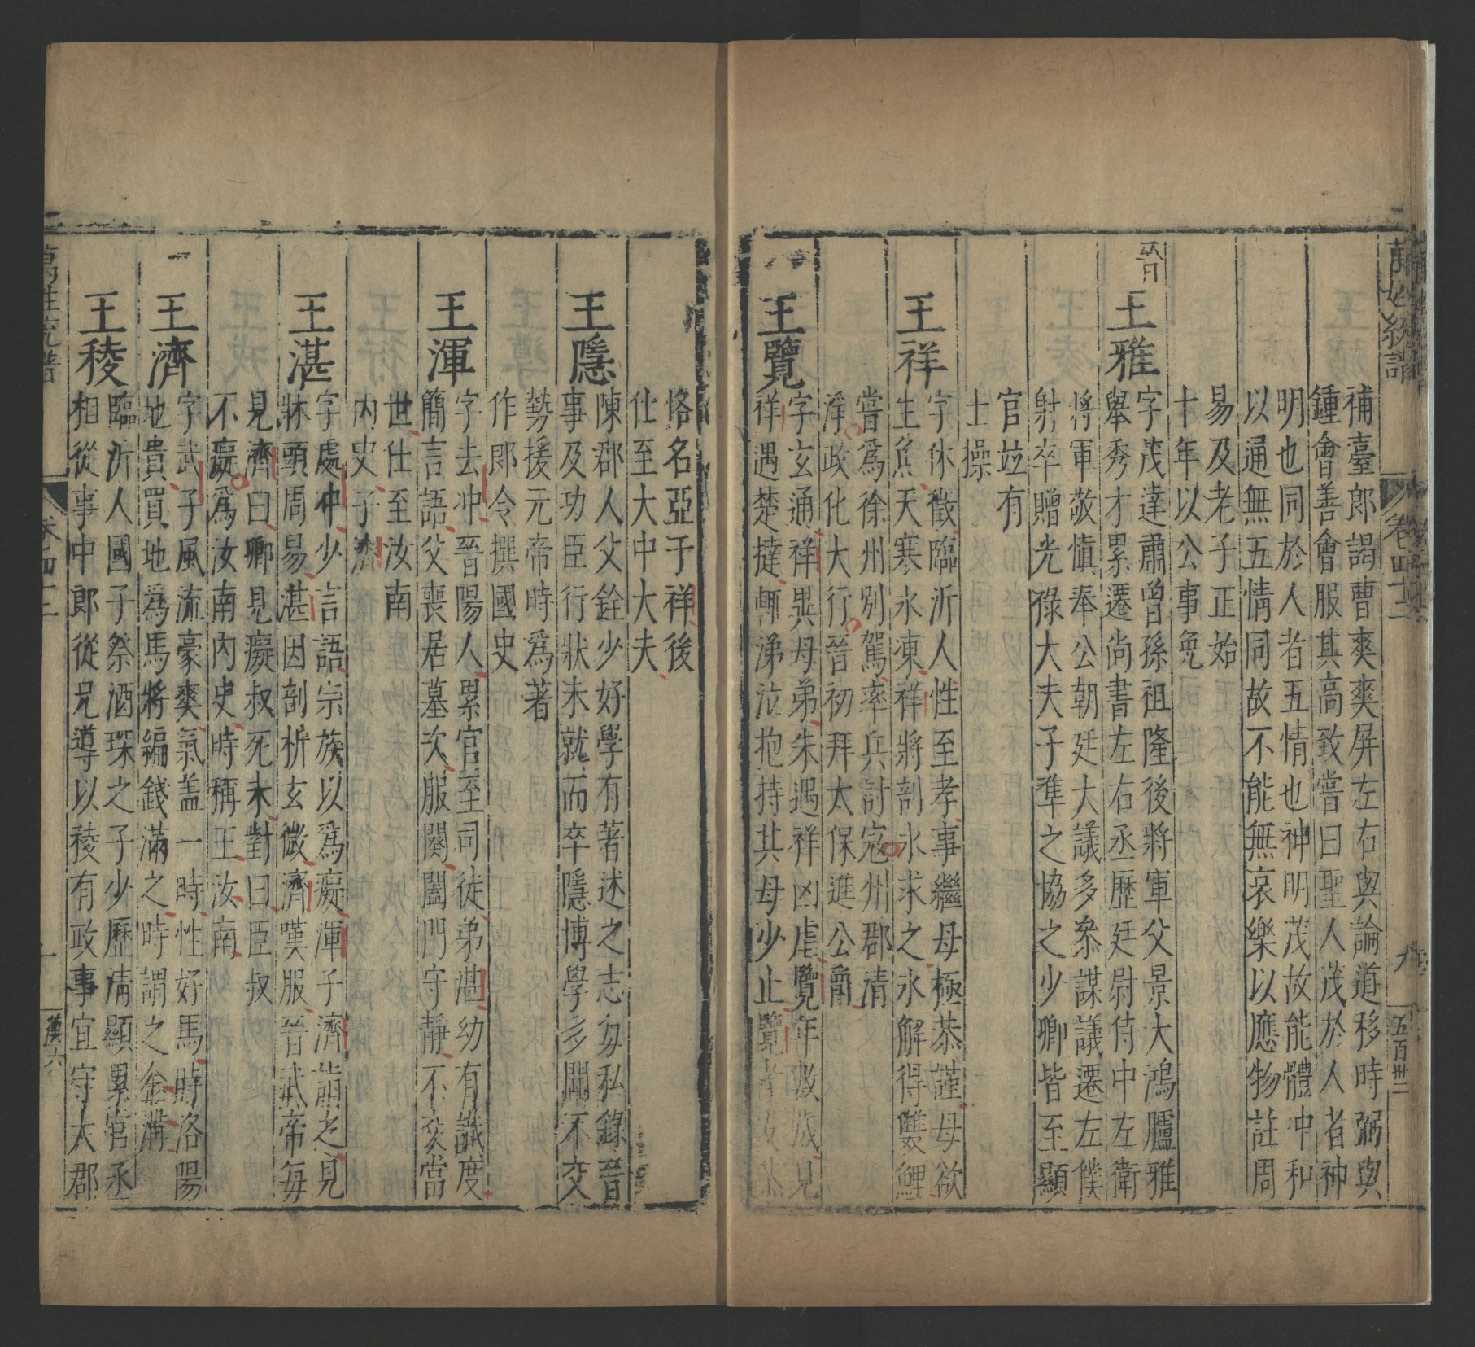 萬姓統譜
卷四十二
九
五百卅二
補臺郎謁曹爽爽屏左右與論道移時弼與
鍾會善會服其高致嘗曰聖人茂於人者神
明也同於人者五情也神明茂故能體中和
以通無五情同故不能無哀樂以應物註周
易及老子正始
十年以公事免
晉
王雅
字茂達肅曾孫祖隆後將軍父景大鴻臚雅
舉秀才累遷尚書左右丞歷廷尉侍中左衛
將軍敬慎奉公朝廷大議多參謀議遷左僕
射卒贈光祿大夫子準之協之少卿皆至顯
官竝有
士操
王祥
字休徵臨沂人性至孝事繼母極恭謹母欲
生魚天寒氷凍祥將剖氷求之氷解得雙鯉
嘗爲徐州別駕率兵討寇州郡清
淨政化大行晉初拜太保進公爵
王覽
字玄通祥異母弟朱遇祥凶虐覽年數歲見
祥遇楚撻輒涕泣抱持其母少止覽孝友
恪名亞于祥後
仕至大中大夫
王隱
陳郡人父銓少好學有著述之志每私錄晉
事及功臣行狀未就而卒隱博學多聞不交
勢援元帝時爲著
作郎令撰國史
王渾
字去冲晉陽人累官至司徒弟湛幼有識度
簡言語父喪居墓次服闋闔門守靜不交當
世仕至汝南
內史子濟
王湛
字處冲少言語宗族以爲癡渾子濟詣之見
牀頭周易湛因剖析玄微濟嘆服晉武帝每
見濟曰卿見癡叔死未對曰臣叔
不癡爲汝南內史時稱王汝南
王濟
字武子風流豪爽氣盖一時性好馬時洛陽
地貴買地爲馬將編錢滿之時謂之金溝
王稜
臨沂人國子祭酒琛之子少歷清顯累官丞
相從事中郎從兄導以稜有政事宜守大郡
萬姓統譜
卷四十二